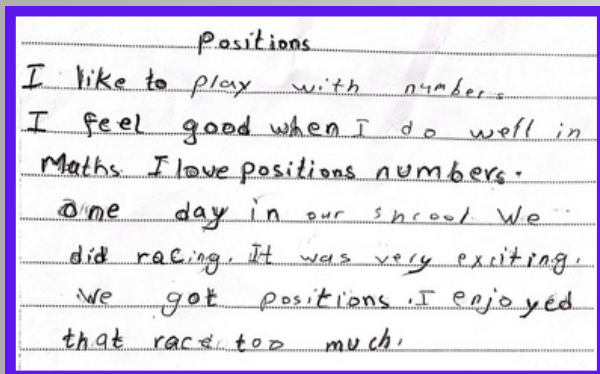 Positions
I like to play with numbers
I feel good when I do well in
Maths. I love positions numbers.
One day in our shcool We
did racing. It was very exciting.
We got positions. I enjoyed
that race too much.